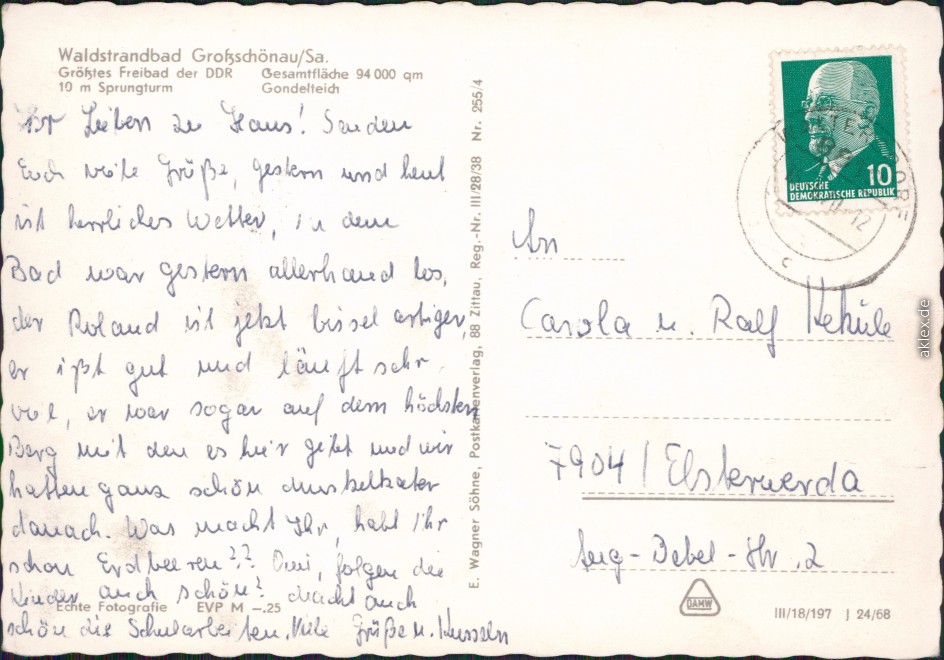 Waldstrandbad Großschönau/Sa.
Größtes Freibad der DDR Gesamtfläche 94 000 qm
10 m Sprungturm Gondelteich
Ihr Lieben zu Haus! Senden
Euch viele Grüße, gestern und heut
ist herrliches Wetter, in dem
Bad war gestern allerhand los,
der Roland ist jetzt bissel artiger,
er ißt gut und läuft sehr
viel, er war sogar auf dem höchsten
Berg mit den es hier gibt und wir
hatten ganz schön Muskelkater
danach. Was macht Ihr, habt Ihr
schon Erdbeeren?? Omi, folgen die
Kinder auch schön? Macht auch
schön die Schularbeiten. Viele Grüße u. Kusseln
Echte Fotografie EVP M –.25
E. Wagner Söhne, Postkartenverlag, 88 Zittau, Reg.-Nr. III/28/38 Nr. 255/4
10
DEUTSCHE
DEMOKRATISCHE REPUBLIK
An
Carola u. Ralf Keküle
7904 / Elsterwerda
Aug-Bebel-Str. 2
DAMW
III/18/197 J 24/68
aklex.de